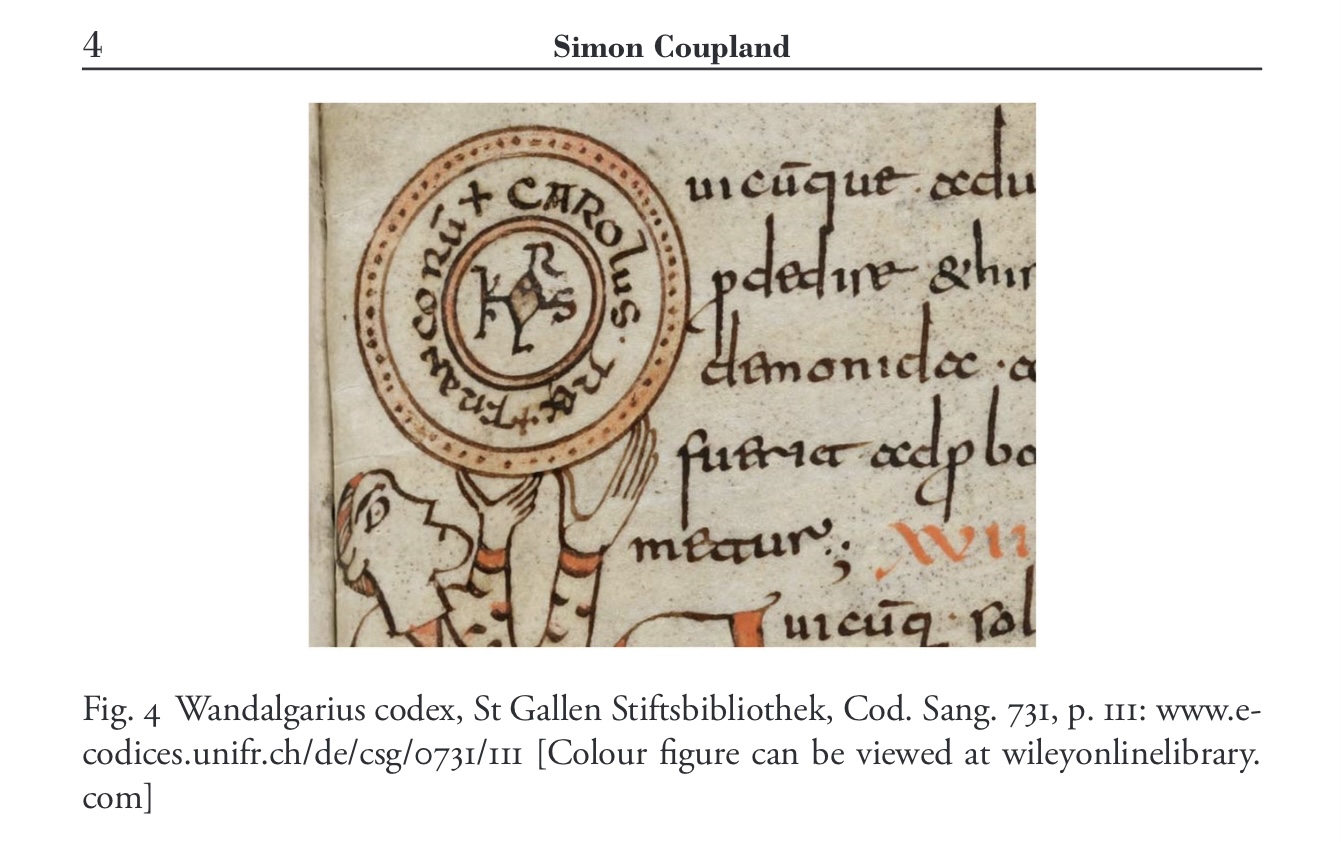 4
Simon Coupland
+ CAROlus · rex + FRANCORŪ
KRLS
uicūque · adu
demonida · a
fuerit adpbo
metur;
XVII
uicūq · sol
Fig. 4 Wandalgarius codex, St Gallen Stiftsbibliothek, Cod. Sang. 731, p. 111: www.e-
codices.unifr.ch/de/csg/0731/111 [Colour figure can be viewed at wileyonlinelibrary.
com]